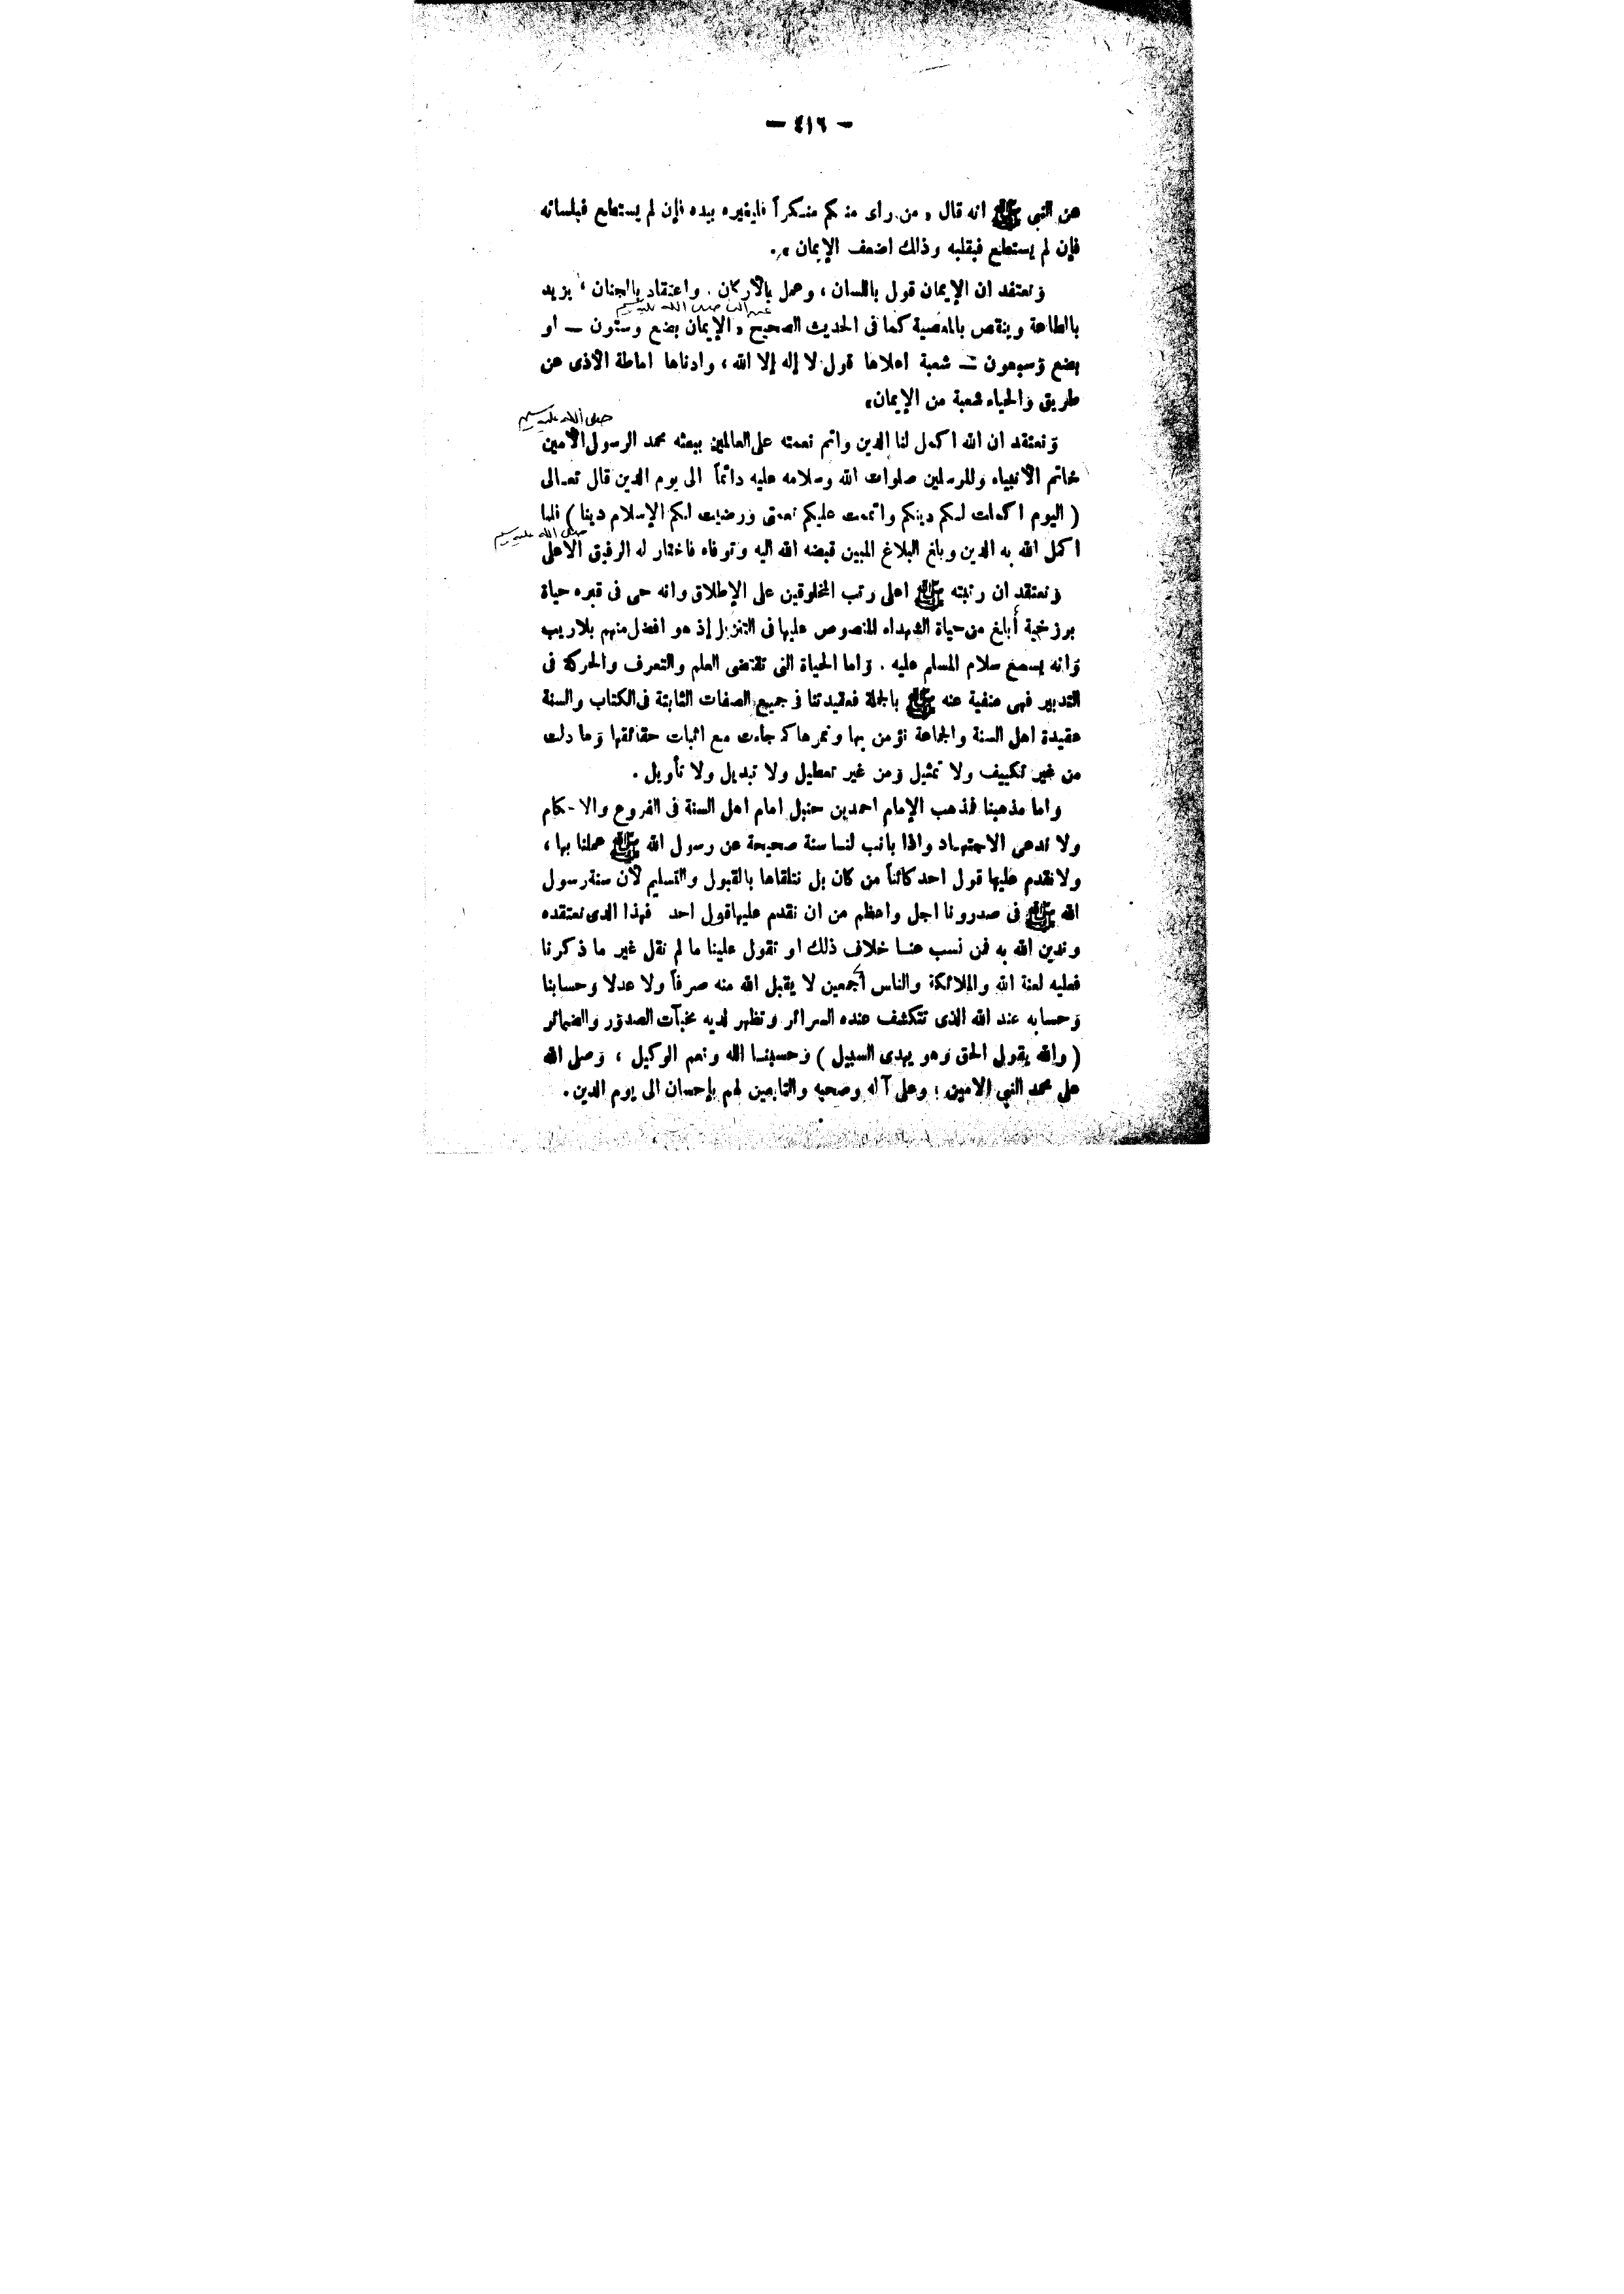 — ٤١٦ —
عن النبي ﷺ انه قال « من راى منكم منكراً فليغيره بيده فإن لم يستطع فبلسانه
فإن لم يستطع فبقلبه وذلك اضعف الإيمان » .
ونعتقد ان الإيمان قول باللسان ، وعمل بالأركان . واعتقاد بالجنان ، يزيد
عن النبي صلى الله عليه وسلم
بالطاعة وينقص بالمعصية كما فى الحديث الصحيح « الإيمان بضع وستون — او
بضع وسبعون — شعبة اعلاها قول لا إله إلا الله ، وادناها اماطة الأذى عن
طريق والحياء شعبة من الإيمان»
صلى الله عليه وسلم
ونعتقد ان الله اكمل لنا الدين واتم نعمته على العالمين ببعثه محمد الرسول الأمين
خاتم الأنبياء وللمرسلين صلوات الله وسلامه عليه دائماً الى يوم الدين قال تعالى
( اليوم اكملت لكم دينكم واتممت عليكم نعمتى ورضيت لكم الإسلام دينا ) فلما
صلى الله عليه وسلم
اكمل الله به الدين وبلغ البلاغ المبين قبضه الله اليه وتوفاه فاختار له الرفيق الأعلى
ونعتقد ان رتبته ﷺ اعلى رتب المخلوقين على الإطلاق وانه حى فى قبره حياة
برزخية أبلغ من حياة الشهداء المنصوص عليها فى التنزيل إذ هو افضل منهم بلاريب
وانه يسمع سلام المسلم عليه . واما الحياة التى تقتضى العلم والتعرف والحركة فى
التدبير فهى منفية عنه ﷺ بالجملة فعقيدتنا فى جميع الصفات الثابتة فى الكتاب والسنة
عقيدة اهل السنة والجماعة نؤمن بها ونمرها كـ جاءت مع اثبات حقائقها وما دلت
من غير تكييف ولا تمثيل ومن غير تعطيل ولا تبديل ولا تأويل .
واما مذهبنا فمذهب الإمام احمدبن حنبل امام اهل السنة فى الفروع والاحكام
ولا ندعى الاجتهاد واذا بانت لنا سنة صحيحة عن رسول الله ﷺ عملنا بها ،
ولا نقدم عليها قول احد كائناً من كان بل نتلقاها بالقبول والتسليم لأن سنة رسول
الله ﷺ فى صدورنا اجل واعظم من ان نقدم عليها قول احد فهذا الذى نعتقده
وندين الله به فمن نسب عنا خلاف ذلك او تقول علينا ما لم نقل غير ما ذكرنا
فعليه لعنة الله والملائكة والناس أجمعين لا يقبل الله منه صرفاً ولا عدلا وحسابنا
وحسابه عند الله الذى تتكشف عنده السرائر وتظهر لديه مخبآت الصدور والضمائر
( والله يقول الحق وهو يهدى السبيل ) وحسبنا الله ونعم الوكيل ، وصل الله
على محمد النبي الامين ؛ وعلى آله وصحبه والتابعين لهم بإحسان الى يوم الدين .